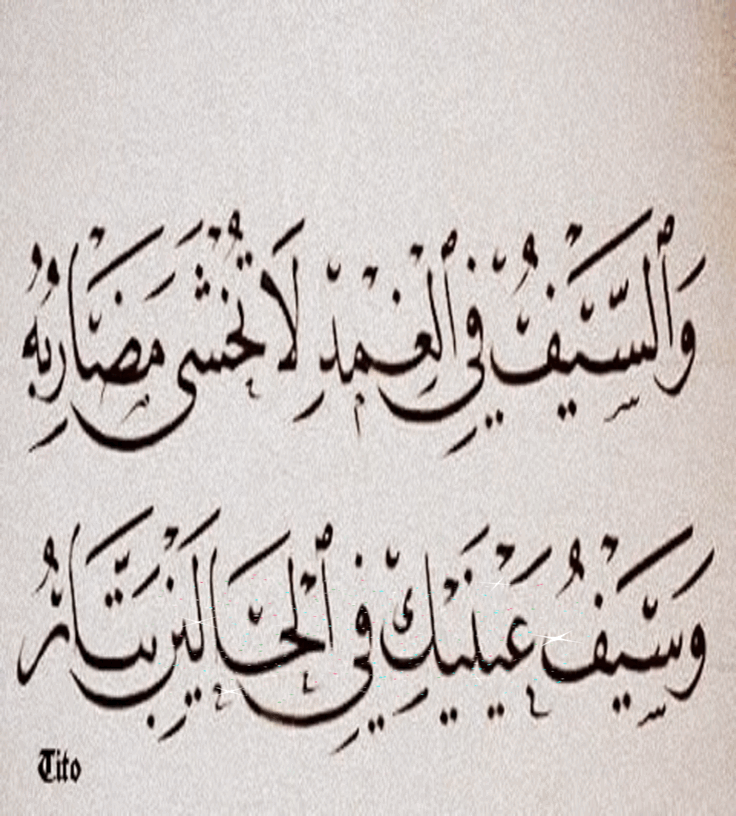 وَٱلسَّيْفُ فِي ٱلْغِمْدِ لَا تُخْشَى مَضَارِبُهُ
وَسَيْفُ عَيْنَيْكِ فِي ٱلْحَالَيْنِ بَتَّارُ
Tito